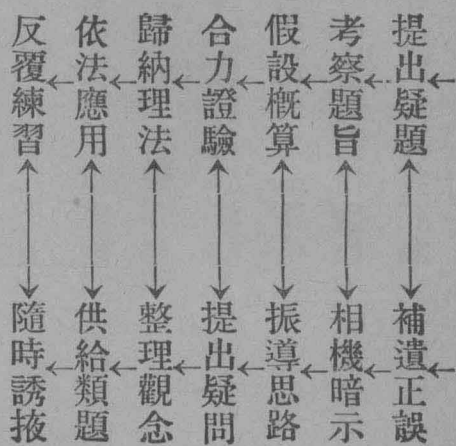 提出疑題
考察題旨
假設概算
合力證驗
歸納理法
依法應用
反覆練習
補遺正誤
相機暗示
振導思路
提出疑問
整理觀念
供給類題
隨時誘掖